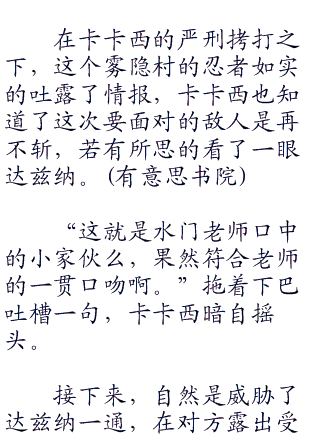 在卡卡西的严刑拷打之
下，这个雾隐村的忍者如实
的吐露了情报，卡卡西也知
道了这次要面对的敌人是再
不斩，若有所思的看了一眼
达兹纳。(有意思书院)
“这就是水门老师口中
的小家伙么，果然符合老师
的一贯口吻啊。”拖着下巴
吐槽一句，卡卡西暗自摇
头。
接下来，自然是威胁了
达兹纳一通，在对方露出受